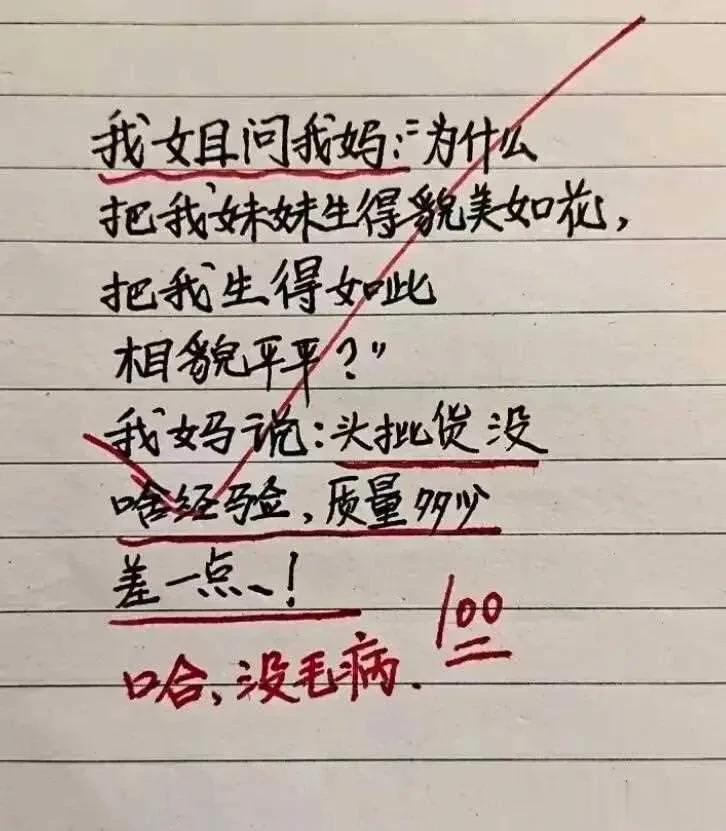 我姐问我妈:“为什么
把我妹妹生得貌美如花,
把我生得如此
相貌平平?”
我妈说:头批货没
啥经验,质量多少
差一点、!
100
哈,没毛病.